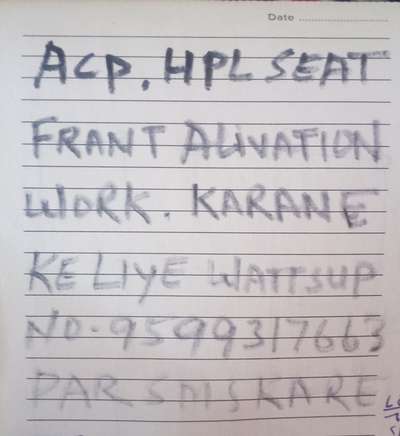 Date
ACP. HPL SEAT
FRANT ALIVATION
WORK. KARANE
KE LIYE WATTSUP
NO-9599317663
PAR SMS KARE